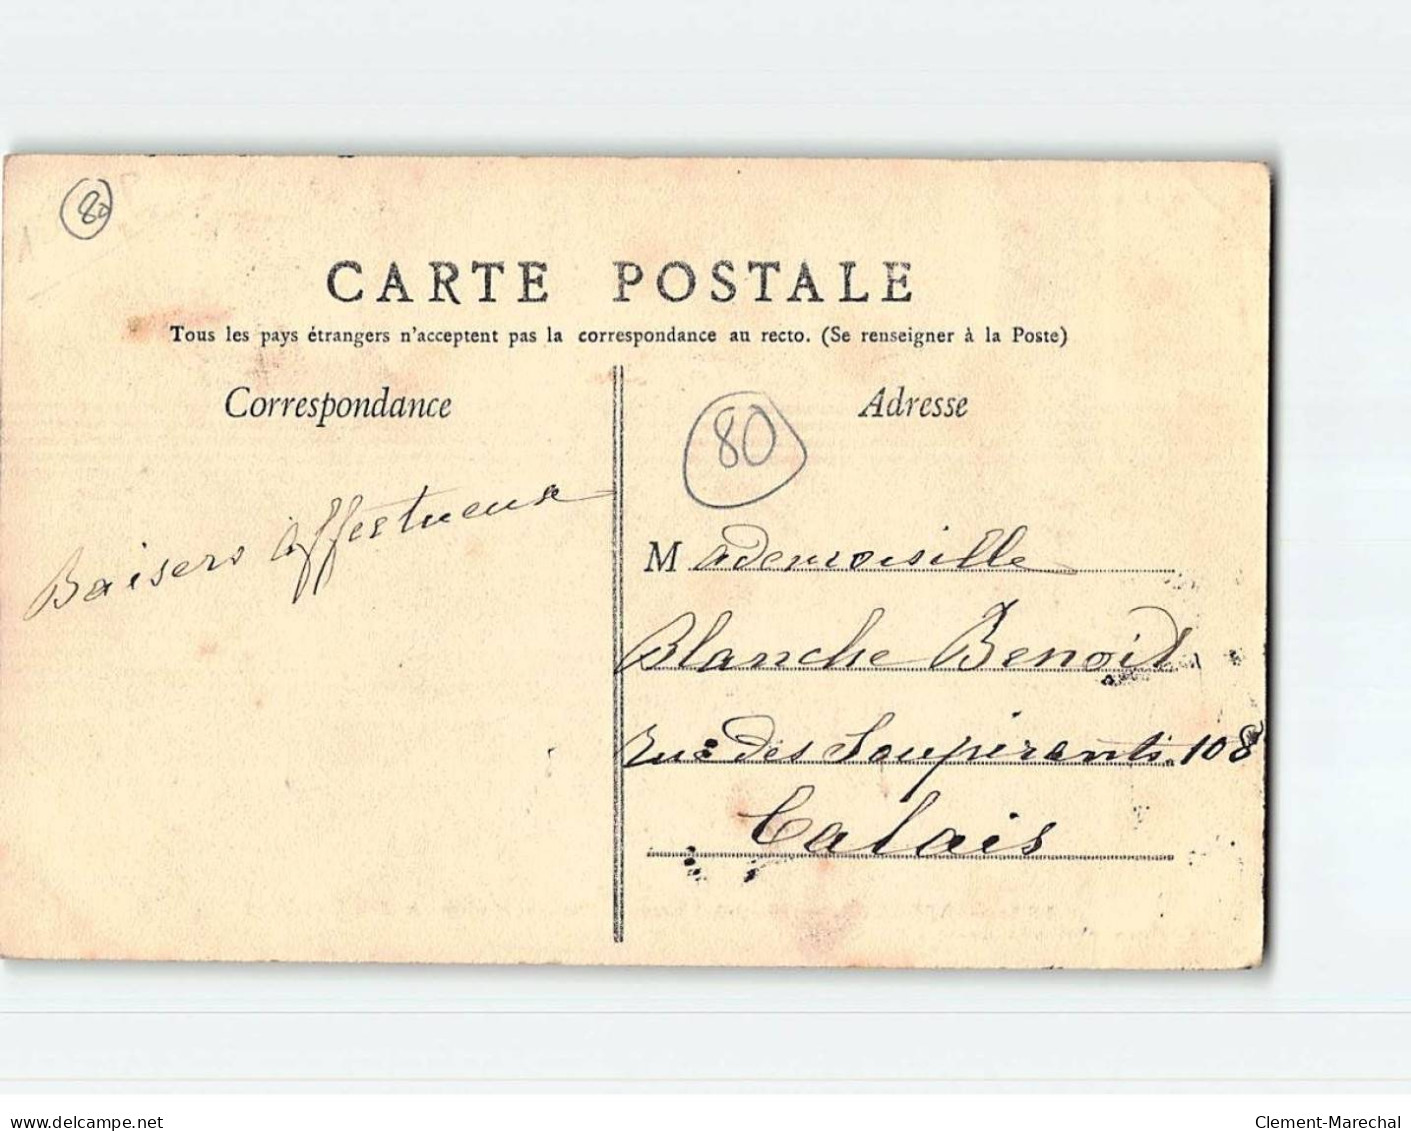 80
CARTE POSTALE
Tous les pays étrangers n'acceptent pas la correspondance au recto. (Se renseigner à la Poste)
Correspondance
Baisers Affectueux
Adresse
80
Mademoiselle
Blanche Benoit
rue des Soupirants 108
Calais
delcampe.net
Clement-Marechal